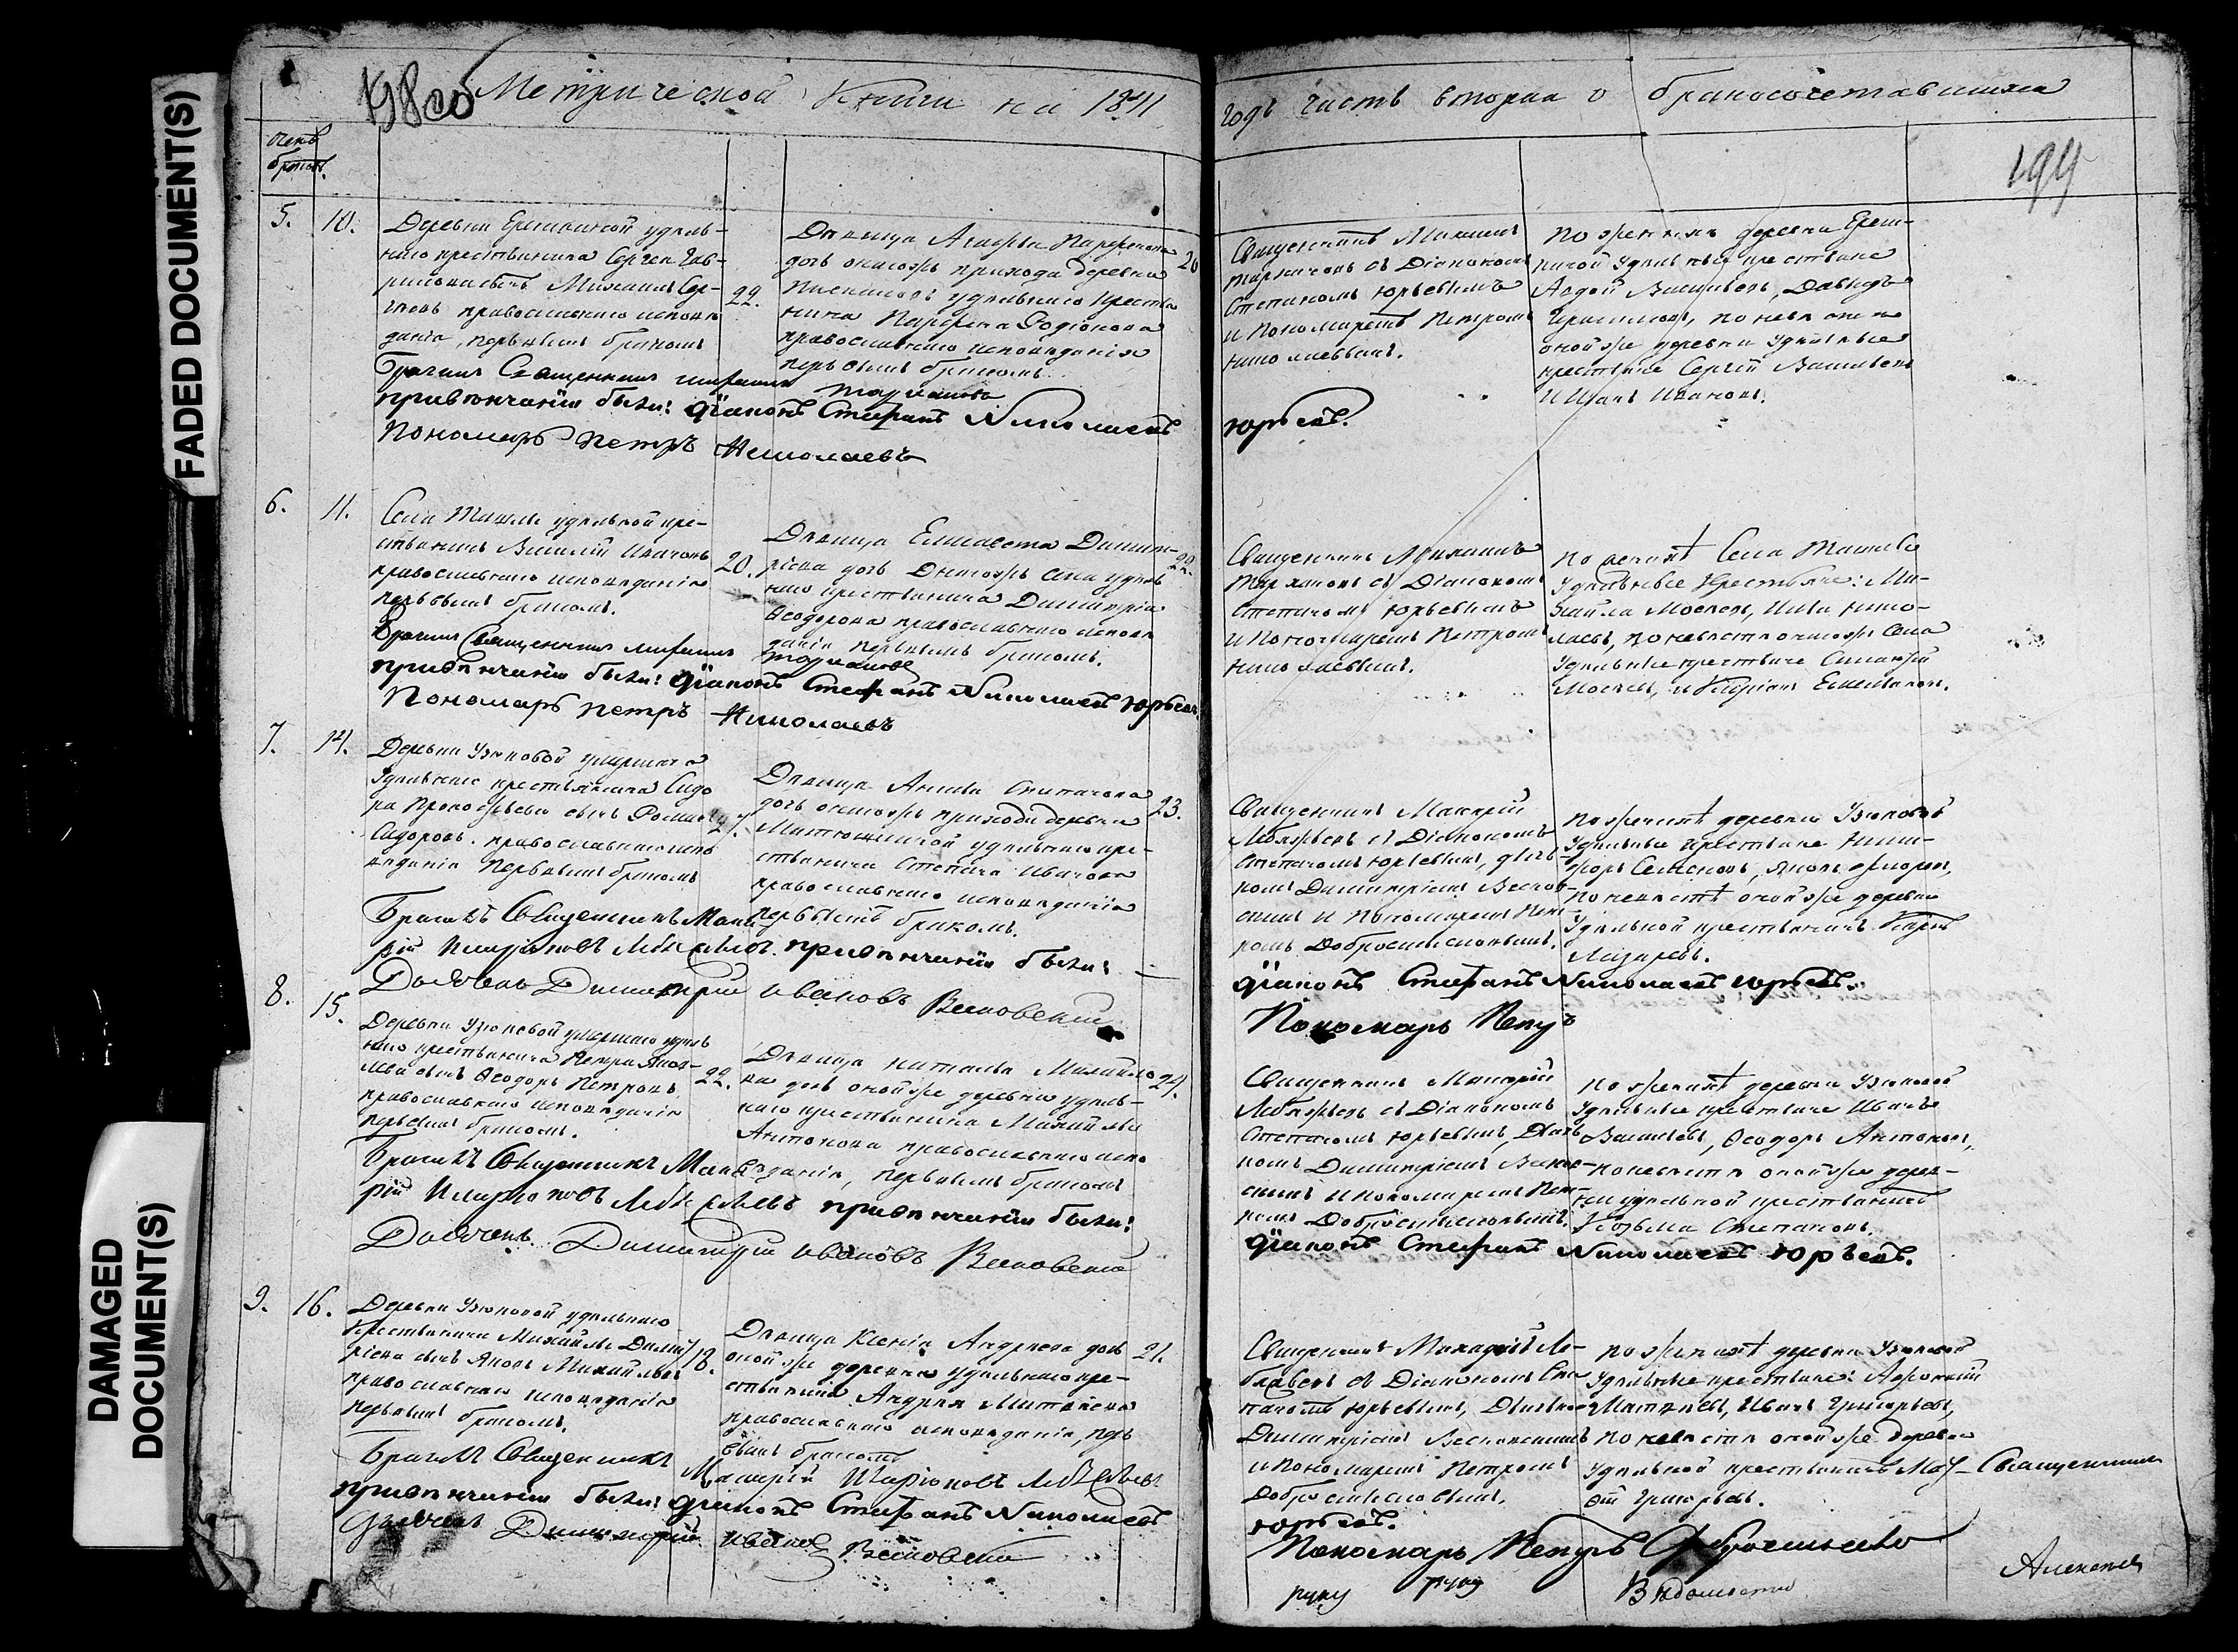 FADED DOCUMENT(S)
DAMAGED
DOCUMENT(S)
Метрической Книги на 1841
годъ часть вторая о бракосочетавшихся
199
5. 10.
Деревни удѣль-
наго крестьянина Сергея Гав-
риловича сынъ Михаилъ Сер-
гѣевъ православнаго исповѣ
данія, первымъ бракомъ
22.
Дѣвица Агафья Парфенова
дочь онагожъ прихода деревни
удѣльнаго крестья
нина Парфена Родіонова
православнаго исповѣданія
первымъ бракомъ.
20
Священникъ Михаилъ
Тархановъ съ Діакономъ
Стефаномъ Юрьевымъ
и Пономаремъ Петромъ
Николаевымъ.
По женихѣ деревни
удѣльные крестьяне
Авдей Васильевъ, Давыдъ
Герасимовъ, по невѣстѣ
онойже деревни удѣльные
крестьяне Сергій Васильевъ
и Иванъ Ивановъ.
Бракъ Священникъ Михаилъ
Тархановъ
привѣнчаніи были: Діаконъ Стефанъ Николаевъ
Юрьевъ.
Пономарь Петръ Николаевъ
6. 11.
Села Ташлы удѣльной кре-
стьянинъ Василій Ивановъ
православнаго исповѣданія
первымъ бракомъ.
20.
Дѣвица Елисавета Димит-
ріева дочь Онагожъ села удѣль
наго крестьянина Димитрія
Ѳеодорова православнаго исповѣ
данія первымъ бракомъ.
22.
Священникъ Михаилъ
Тархановъ съ Діакономъ
Стефаномъ Юрьевымъ
и Пономаремъ Петромъ
Николаевымъ.
По женихѣ Села Ташлы
Удѣльные Крестьяне: Ми-
хайла Моисеевъ, Нико-
лаевъ, по невѣстѣ онагожъ Села
Удѣльные крестьяне
Моисеевъ, и Емельяновъ.
Бракъ Священникъ Михаилъ
Тархановъ
привѣнчаніи были: Діаконъ Стефанъ Николаевъ Юрьевъ
Пономарь Петръ Николаевъ
7. 14.
Деревни Узюковой умершаго
удѣльнаго крестьянина Сидо
ра Прокофьева сынъ Романъ
Сидоровъ. православнаго испо
вѣданія первымъ бракомъ
Дѣвица Анна Степанова
дочь онагожъ прихода деревни
Матюшкиной удѣльнаго кре-
стьянина Степана Иванова
православнаго исповѣданія
первымъ бракомъ.
23.
Священникъ Макарій
Лебяжьевъ съ Діакономъ
Стефаномъ Юрьевымъ, дьяч-
комъ Димитріемъ Весновс-
кимъ и Пономаремъ Пет-
ромъ Добросмысловымъ.
По женихѣ деревни Узюковой
Удѣльные крестьяне Ники-
форъ Семеновъ, Яковъ
по невѣстѣ онойже деревни
Удѣльной крестьянинъ Карпъ
Лазаревъ.
Бракъ Священникъ Мака-
рій Иларіоновъ Лебяжьевъ. привѣнчаніи были:
Діаконъ Стефанъ Николаевъ Юрьевъ.
Дьячекъ Димитрій Ивановъ Весновскій
Пономарь Петръ
8. 15.
Деревни Узюковой умершаго удѣль
наго крестьянина Петра Яков-
лева сынъ Ѳеодоръ Петровъ
православнаго исповѣданія
первымъ бракомъ.
22.
Дѣвица Наталья Михайло
ва дочь онойже деревни удѣль-
наго крестьянина Михайлы
Антонова православнаго испо
вѣданія, первымъ бракомъ
24.
Священникъ Макарій
Лебяжьевъ съ Діакономъ
Стефаномъ Юрьевымъ, Дьяч
комъ Димитріемъ Веснов-
скимъ и пономаремъ Пет-
ромъ Добросмысловымъ.
По женихѣ деревни Узюковой
Удѣльные крестьяне Иванъ
Васильевъ, Ѳеодоръ Антоновъ,
по невѣстѣ онойже дерев-
ни удѣльной крестьянинъ
Козьма Степановъ.
Бракъ Священникъ Мака
рій Иларіоновъ Лебяжьевъ привѣнчаніи были:
Діаконъ Стефанъ Николаевъ Юрьевъ.
Дьячекъ Димитрій Ивановъ Весновскій
9. 16.
Деревни Узюковой удѣльнаго
крестьянина Михайлы Димит
ріева сынъ Яковъ Михайловъ
православнаго исповѣданія
первымъ бракомъ.
18.
Дѣвица Ксенія Андреева дочь
онойже деревни удѣльнаго кре-
стьянина Андрея Матвѣева
православнаго исповѣданія, пер
вымъ бракомъ
21.
Священникъ Макарій Ле-
бяжьевъ съ Діакономъ Сте
фаномъ Юрьевымъ, Дьячкомъ
Димитріемъ Весновскимъ
и Пономаремъ Петромъ
Добросмысловымъ.
По женихѣ деревни Узюковой
Удѣльные крестьяне:
Матвѣевъ, Иванъ Григорьевъ,
по невѣстѣ онойже деревни
Удѣльной крестьянинъ
Григорьевъ.
Священникъ
Бракъ Священникъ
Макарій Иларіоновъ Лебяжьевъ
привѣнчаніи были: Діаконъ Стефанъ Николаевъ
Юрьевъ.
Дьячекъ Димитрій Ивановъ Весновскій
Пономарь Петръ Добросмысловъ
руку руку
Алексей